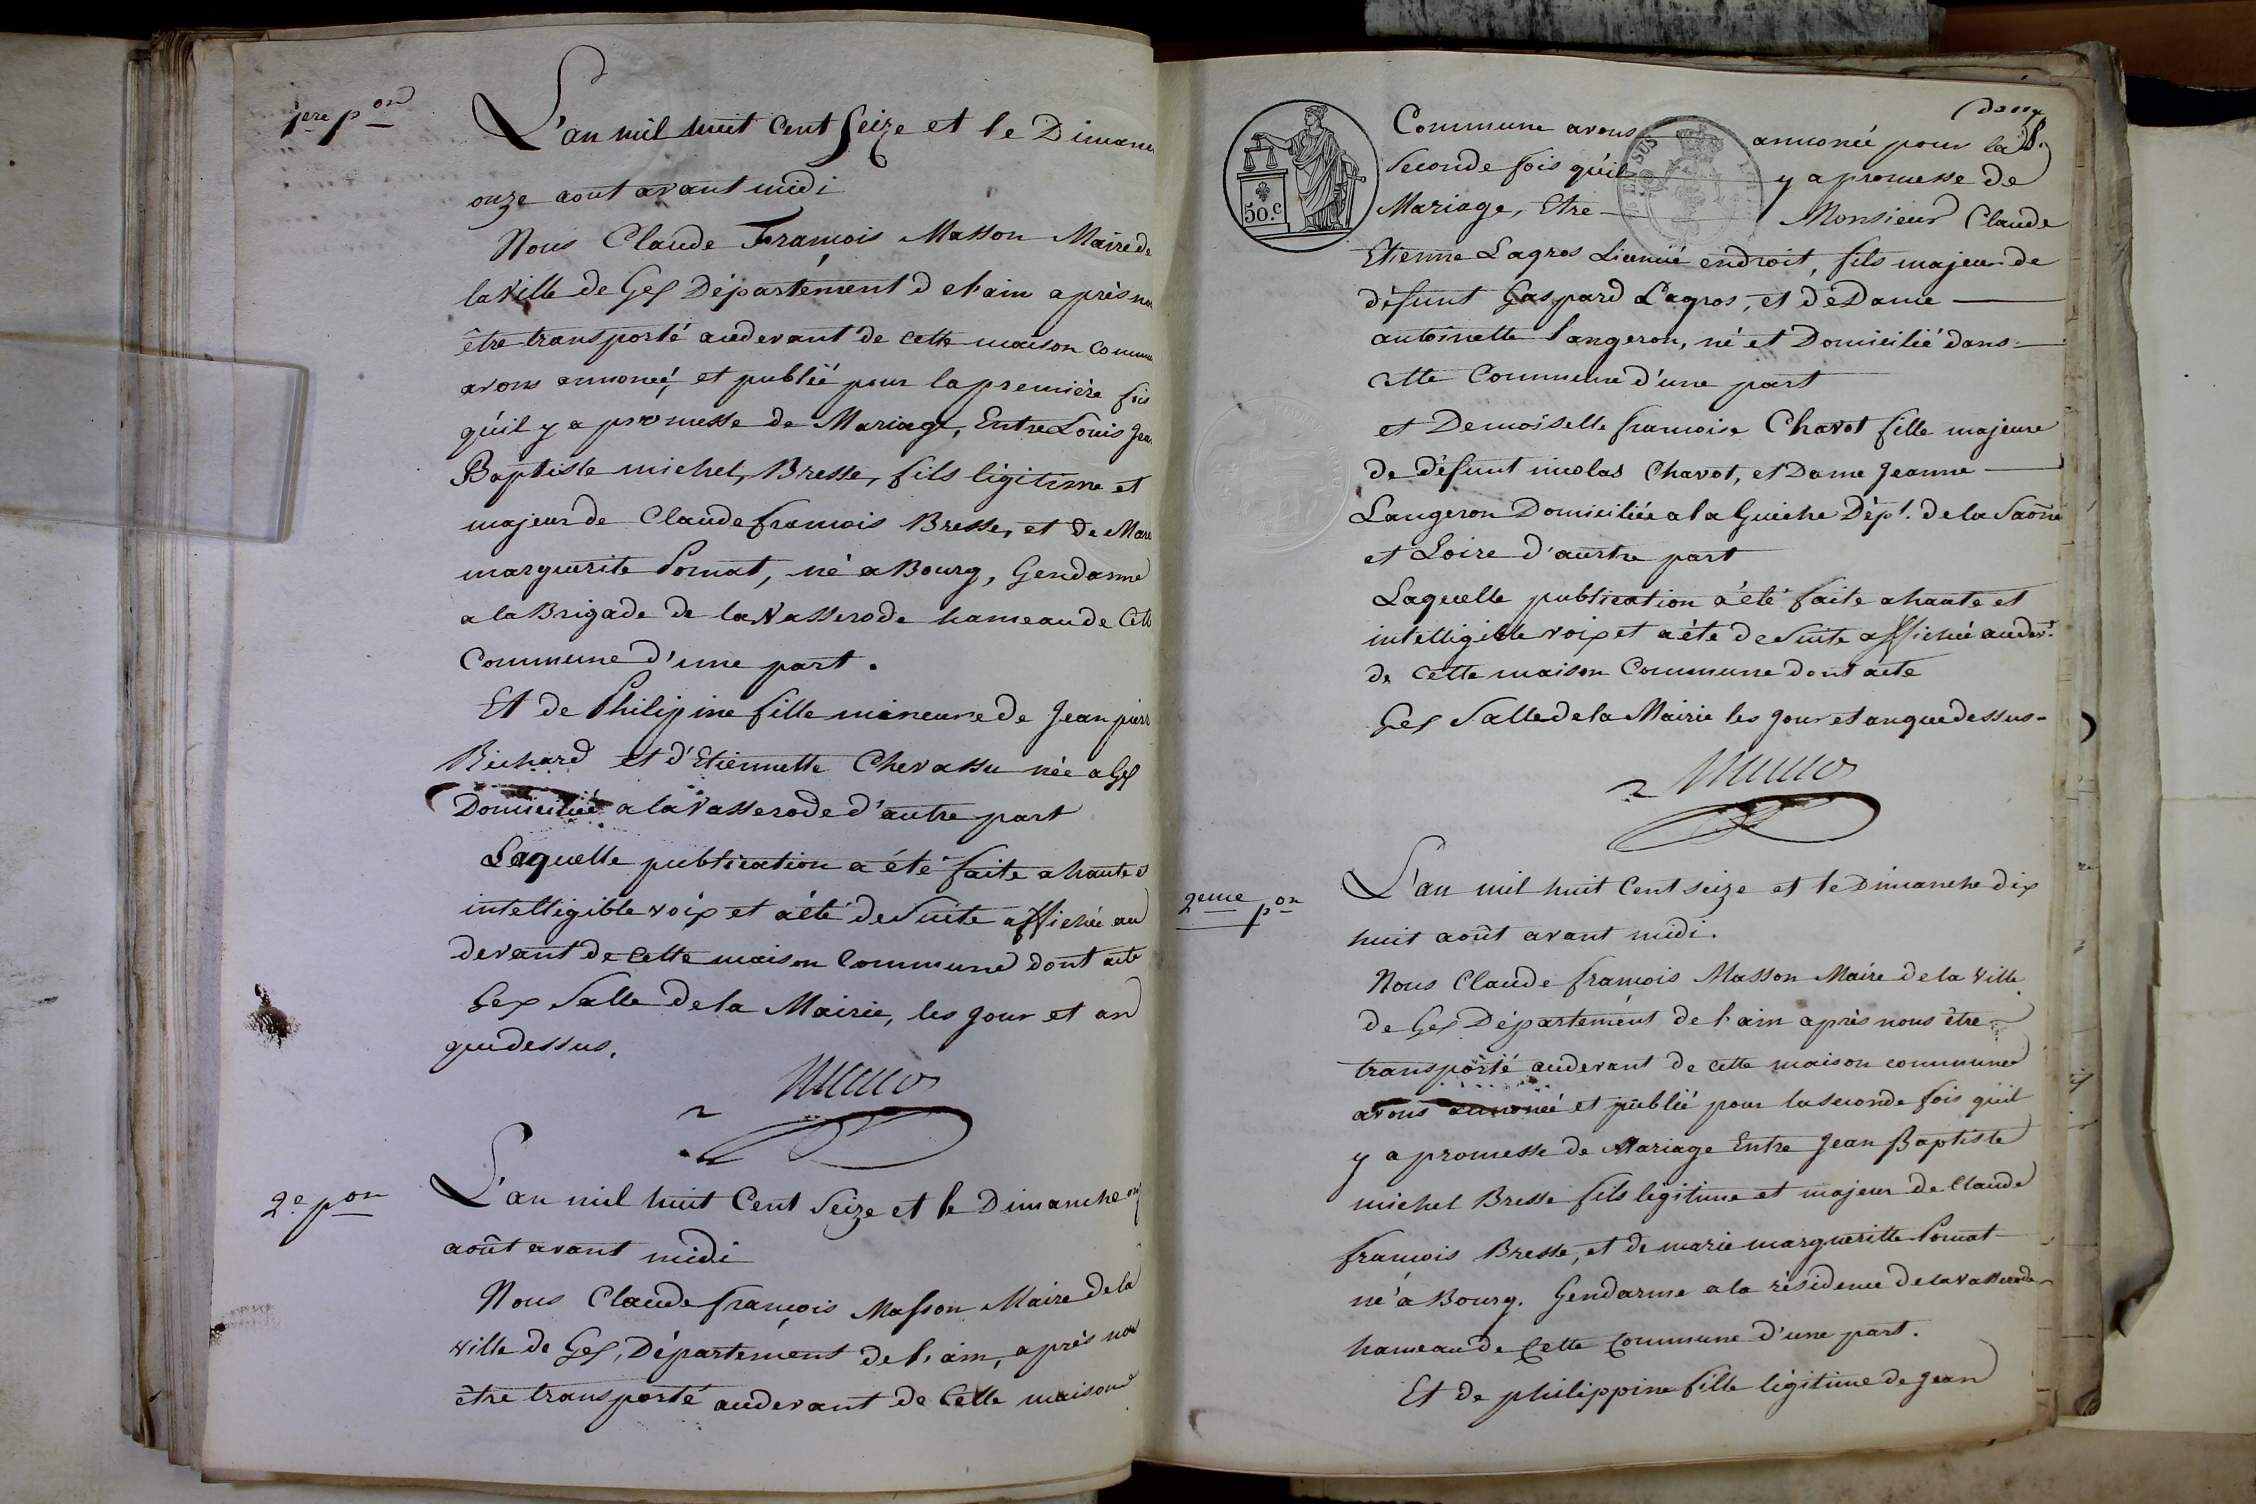 1ere pon
L'an mil huit Cent Seize et le Diman
onze aout avant midi
Nous Claude François Masson Maire de
la Ville de Gex Département de l'ain après no
être transporté audevant de cette maison Commu
avons annoncé, et publié pour la première fois
qu'il y a promesse de Mariage, Entre Louis Jea
Baptiste michel, Bresse, fils légitime et
majeur de Claude francois Bresse, et de Mar
marguerite Pomat, né a Bourg, Gendarme
a la Brigade de la Vasserode hameau de Cett
Commune d'une part.
Et de Philipine fille mineure de Jean pierr
Richard et d'Etiennette Chevassu née a Gex
Domiciliée a la Vasserode d'autre part
Laquelle publication a été faite a haute et
intelligible voix et a été de Suite affichée au
devant de cette maison Commune dont acte
Gex Salle de la Mairie, les jour et an
que dessus.
2e pon
L'an mil huit Cent Seize et le Dimanche onz
août avant midi
Nous Claude françois Masson Maire de la
ville de Gex, Département de l'ain, après nou
être transporté audevant de Cette maison
Commune avons annoncé pour la
Seconde fois qu'il y a promesse de
Mariage, Etre Monsieur Claude
Etienne Lagros Licencié en droit, fils majeur de
défunt Gaspard Lagros, et de Dame
antoinette Langeron, né et Domicilié dans
cette Commune d'une part
et Demoiselle francoise Chavot fille majeure
de défunt nicolas Chavot, et Dame Jeanne
Langeron Domiciliée a la Guiche Dépt. de la Saône
et Loire d'autre part
Laquelle publication a été faite a haute et
intelligible voix et a été de Suite affichée audevt.
de cette maison Commune dont acte
Gex Salle de la Mairie les jour et an que dessus
50.c
2eme pon
L'an mil huit Cent seize et le Dimanche dix
huit août avant midi.
Nous Claude françois Masson Maire de la Ville
de Gex Département de l'ain après nous être
transporté audevant de cette maison commune
avons annoncé et publié pour la seconde fois qu'il
y a promesse de Mariage Entre Jean Baptiste
michel Bresse fils legitime et majeur de Claude
francois Bresse, et de marie margueritte Pomat
né a Bourg. Gendarme a la résidence de la vasserode
hameau de Cette Commune d'une part.
Et de philippine fille légitime de Jean